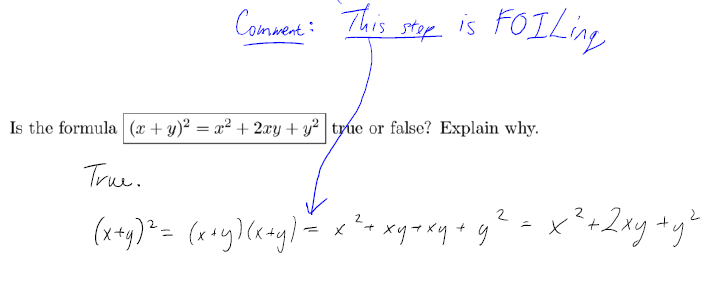 Comment: This step is FOILing
Is the formula (x + y)² = x² + 2xy + y² true or false? Explain why.
True.
(x+y)² = (x+y)(x+y) = x² + xy + xy + y² = x² + 2xy + y²